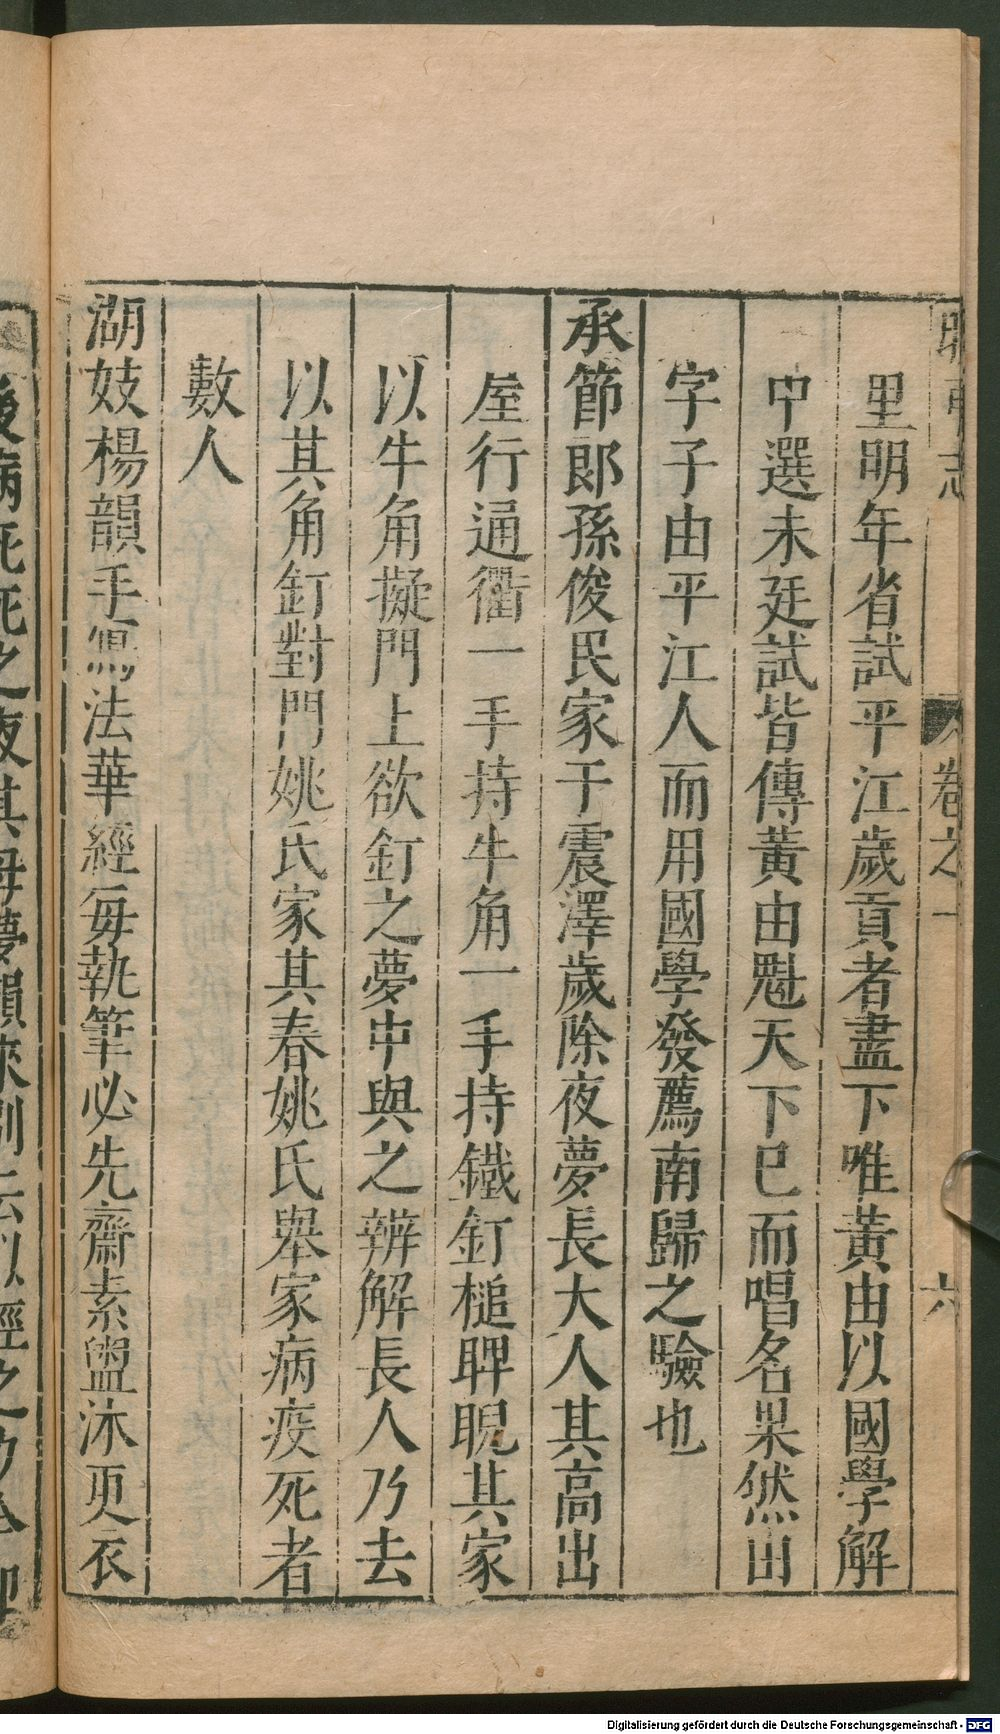 卷之一
六
里明年省試平江歲貢者盡下唯黃由以國學解
中選未廷試皆傳黃由魁天下已而唱名果然由
字子由平江人而用國學發薦南歸之驗也
承節郎孫俊民家于震澤歲除夜夢長大人其高出
屋行通衢一手持牛角一手持鐵釘槌睥睨其家
以牛角擬門上欲釘之夢中與之辨解長人乃去
以其角釘對門姚氏家其春姚氏舉家病疫死者
數人
湖妓楊韻手寫法華經每執筆必先齋素盥沐更衣
後病死死之夜其母夢韻來別云以經之力今
Digitalisierung gefördert durch die Deutsche Forschungsgemeinschaft - DFG